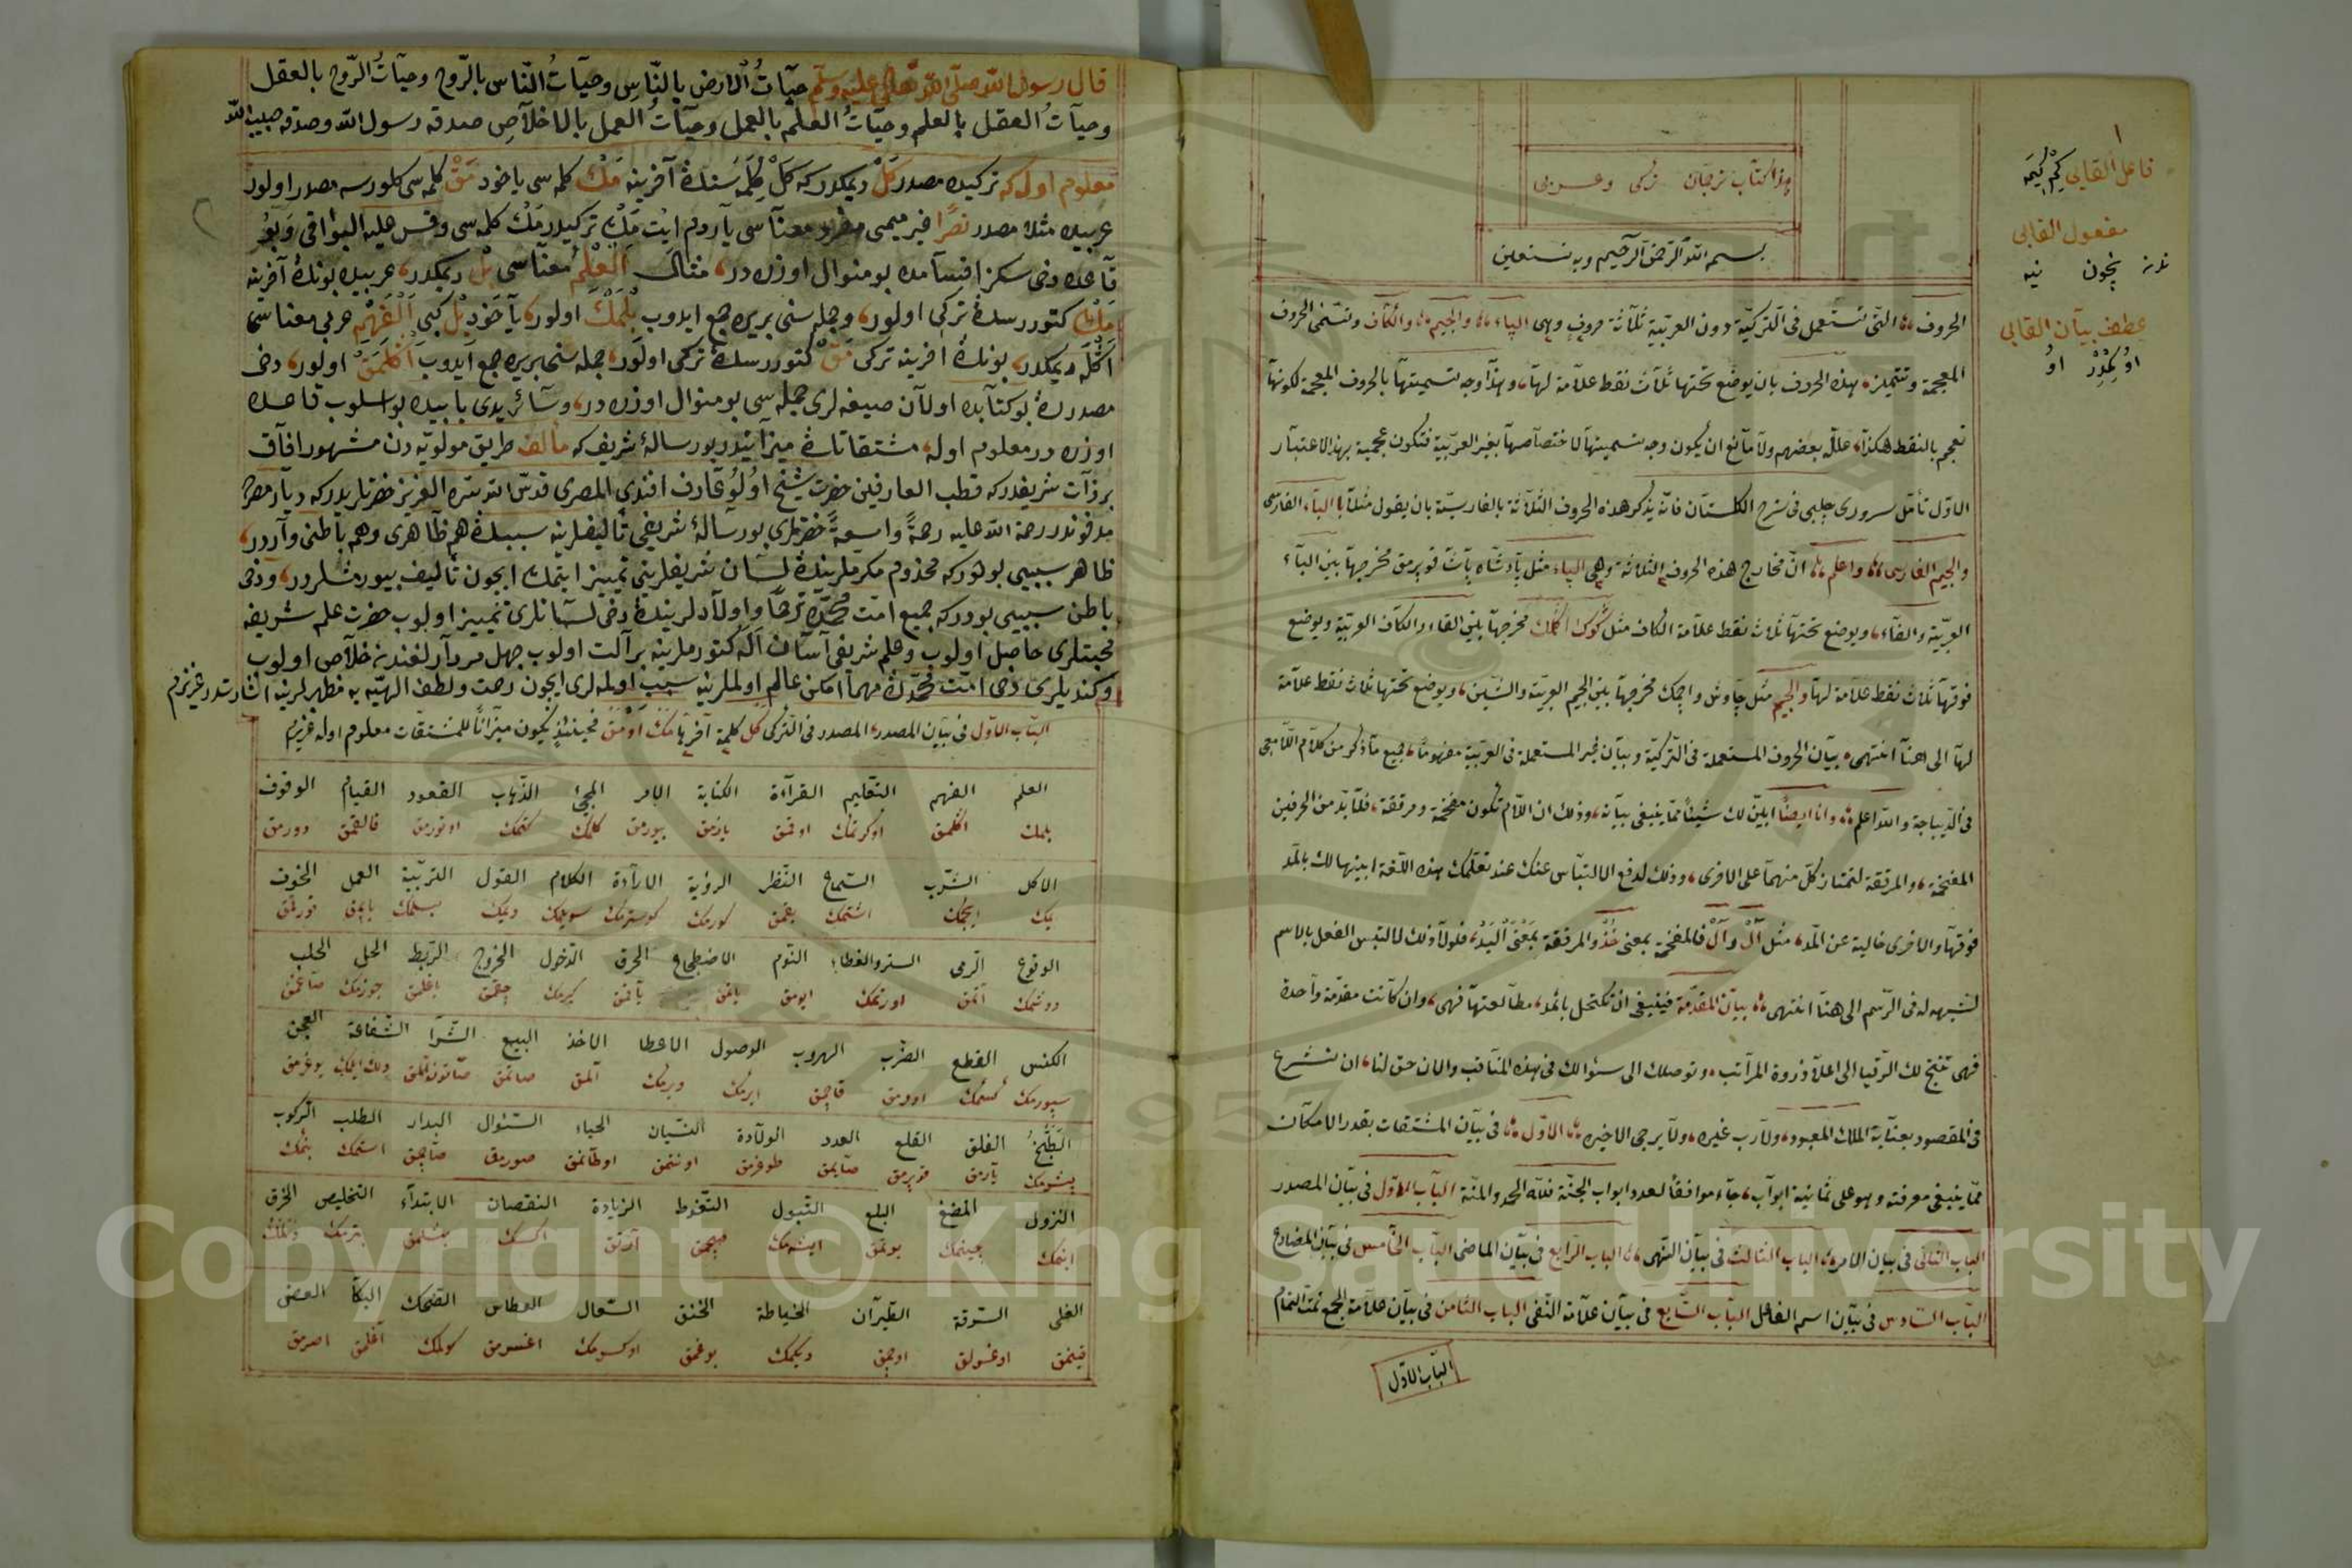 هذا كتاب ترجمان تركى وعربى
بسم الله الرحمن الرحيم وبه نستعين
الحروف التى تستعمل فى التركيّة دون العربيّة ثلاثة حروف وهى الپاء والجيم والكاف وتسمّى الحروف
المعجمة وتتميّز هذه الحروف بان يوضع تحتها ثلاث نقط علامة لها وهذا وجه تسميتها بالحروف المعجمة لكونها
تعجم بالنقط هكذا علل بعضهم ولا مانع ان يكون وجه تسميتها لاختصاصها بغير العربيّة فتكون عجمية بهذا الاعتبار
الاوّل تأمّل سرورى چلبى فى شرح الكلستان فانّه يذكر هذه الحروف الثلاثة بالفارسيّة بان يقول مثلا الباء الفارسى
والجيم الفارسى واعلم انّ مخارج هذه الحروف الثلاثة وهى الپاء مثل پادشاه پاشا قوپرمق مخرجها بين الباء
العربيّة والفاء ويوضع تحتها ثلاث نقط علامة الكاف مثل مخرجها بين القاء والكاف العربيّة ويوضع
فوقها ثلاث نقط علامة لها والجيم مثل چاوش واچمك مخرجها بين الجيم العربيّة والشين ويوضع تحتها ثلاث نقط علامة
لها الى هنا انتهى بيان الحروف المستعملة فى التركيّة وبيان غير المستعملة فى العربيّة مفهوما فجميع ما ذكر من كلام اللامعى
فى الديباجة والله اعلم وانا ايضًا ابيّن لك شيئًا ممّا ينبغى بيانه وذلك ان اللام تكون مفخمة ومرققة فلا بدّ من الحرفين
المفخمة والمرققة لتمتاز كلّ منهما على الاخرى وذلك لدفع الالتباس عنك عند تعلّمك هذه اللّغة ابينها لك بالمد
فوقها والاخرى خالية عن المد مثل آل وأل فالمفخمة بمعنى خُذْ والمرققة بمعنى اليَدُ فلولا ذلك لالتبس الفعل بالاسم
لشبهه له فى الرّسم الى هنا انتهى بيان المقدّمة فينبغى ان تكتحل باثمد مطالعتها فهى وان كانت مقدّمة واحدة
فهى تنتج لك الرقيا الى اعلا ذروة المراتب وتوصلك الى سئوالك فى هذه المناقب والان حق لنا ان نشرع
فى المقصود بعناية الملك المعبود ولا رب غيره ولا يرجى الا خيره الاوّل فى بيان المشتقات بقدر الامكان
ممّا ينبغى معرفته وهو على ثمانية ابواب جاء موافقًا لعدد ابواب الجنّة فلله الحمد والمنّة الباب الاوّل فى بيان المصدر
الباب الثانى فى بيان الامر الباب الثالث فى بيان النهى الباب الرّابع فى بيان الماضى الباب الخامس فى بيان المضارع
الباب السادس فى بيان اسم الفاعل الباب السّابع فى بيان علامة النّفى الباب الثامن فى بيان علامة الجمع تمت التمام
الباب الاوّل
١
فاعل القابى كِمْ كِيمَه
مفعول القابى
ندن نيچون نيه
عطف بيان القابى
اوُ
قال رسول الله صلّى الله تعالى عليه وسلّم حيات الارض بالنّاس وحيات النّاس بالرّوح وحيات الرّوح بالعقل
وحيات العقل بالعلم وحيات العلم بالعمل وحيات العمل بالاخلاص صدق رسول الله وصدق حبيب الله
معلوم اوله كه تركيده مصدر كل ديمكدر كه كل كلمه سنك آخرينه مَك كلمه سى ياخود مَق كلمه سى كلورسه مصدر اولور
عربيده مثلا مصدر نصرًا غير ميمى معناسى ياردم ايت مك تركيدر مك كلمه سى وقس عليه البواقى
قاعده دخى سكز اقسامده بو منوال اوزره در مثلا اَلْعِلْمُ معناسى بِلْ ديمكدر عربيده بونك آخرينه
مَكْ كتوررسك تركى اولور وجمله سنى بريره جمع ايدوب بِلْمَكْ اولور ياخود بِلْ كبى اَلْفَهْم عربى معناسى
اَڭلَه ديمكدر بونك آخرينه تركى مَقْ كتوررسك تركى اولور جمله سنى بريره جمع ايدوب اَڭلَمَقْ اولور دخى
مصدرك بو كتابده اولان صيغه لرى جمله سى بو منوال اوزره در وسائر يدى بابيده بو اسلوب قاعده
اوزره در معلوم اوله مشتقاتك ميزانيدر بو رساله شريف كه مؤلف طريق مولويّه دن مشهور آفاق
بر ذات شريفدر كه قطب العارفين حضرت شيخ اولو عارف افندى المصرى قدّس الله سرّه العزيز حضرتلريدر كه ديار مصر
مدفوندر رحمة الله عليه رحمةً واسعةً حضرتلرى بو رساله شريفى تأليفلرينه سببك هم ظاهرى وهم باطنى واردر
ظاهر سببى بودر كه مخدوم مكرملرينك لسان شريفلرينى تمييز ايتمك ايچون تأليف بيورمشلردر ودخى
باطن سببى بودر كه جميع امّت محمّده ترحما واولادلرينك دخى لسانلرى تمييز اولوب حضرت علم شريفه
محبتلرى حاصل اولوب وعلم شريفى آسان اله كتورملرينه بر آلت اولوب جهل مردارلغندن خلاص اولوب
وكنديلرى دخى امّت محمّدك مهما امكن عالم اولملرينه سبب اولملرى ايچون رحمت ولطف الهيّه يه مظهرلرينه اشارتدر عزيزم
الباب الاوّل فى بيان المصدر المصدر فى التّركى كل كلمة آخرها مَك او مَق فحينئذ يكون ميزانًا للمشتقات معلوم اوله عزيزم
العلم الفهم التعليم القرآءة الكتابة الامر المجئ الذّهاب القعود القيام الوقوف
بلمك اڭلمق اوكرتمك اوقمق يازمق بيورمق كلمك كتمك اوتورمق قالقمق دورمق
الاكل الشّرب السّماع النّظر الرؤية الارآدة الكلام القول التربيّة العمل الخوف
يمك ايچمك اشتمك بقمق كورمك كوسترمك سويلمك ديمك بسلمك ياپمق قورقمق
الوقوع الرمى الستر والغطاء النّوم الاضطجاع الحرق الدّخول الخروج الرّبط الحل الحلب
دوشمك آتمق اورتمك اويومق ياتمق ياقمق كيرمك چقمق بغلمق چوزمك صاغمق
الكنس القطع الضّرب الهروب الوصول الاعطا الاخذ البيع الشّرا الشّفاعة العجن
سپورمك كسمك اورمق قاچمق ايرمك ويرمك آلمق صاتمق صاتون آلمق دلك ايتمك يوغرمق
الطّبخ الفلق القلع العدد الولادة النّسيان الحياء السّئوال البدار الطلب الرّكوب
پشورمك يارمق قوپرمق صايمق طوغرمق اونتمق اوطانمق صورمق صاچمق استمك بنمك
النزول المضغ البلع التّبول التّغوط الزيادة النقصان الابتدآء التخليص الخرق
اينمك چينمك يوتمق ايشمك صچمق آرتمق اكسك بشلمق بترمك دلمك
الغلى السّرقة الطّيرآن الخياطة الخنق السّعال العطاس الضّحك البكا العض
قينمق اوغرلق اوچمق ديكمك بوغمق اوكسورمك اغسرمق كولمك آغلمق اصرمق
Copyright © King Saud University
1957